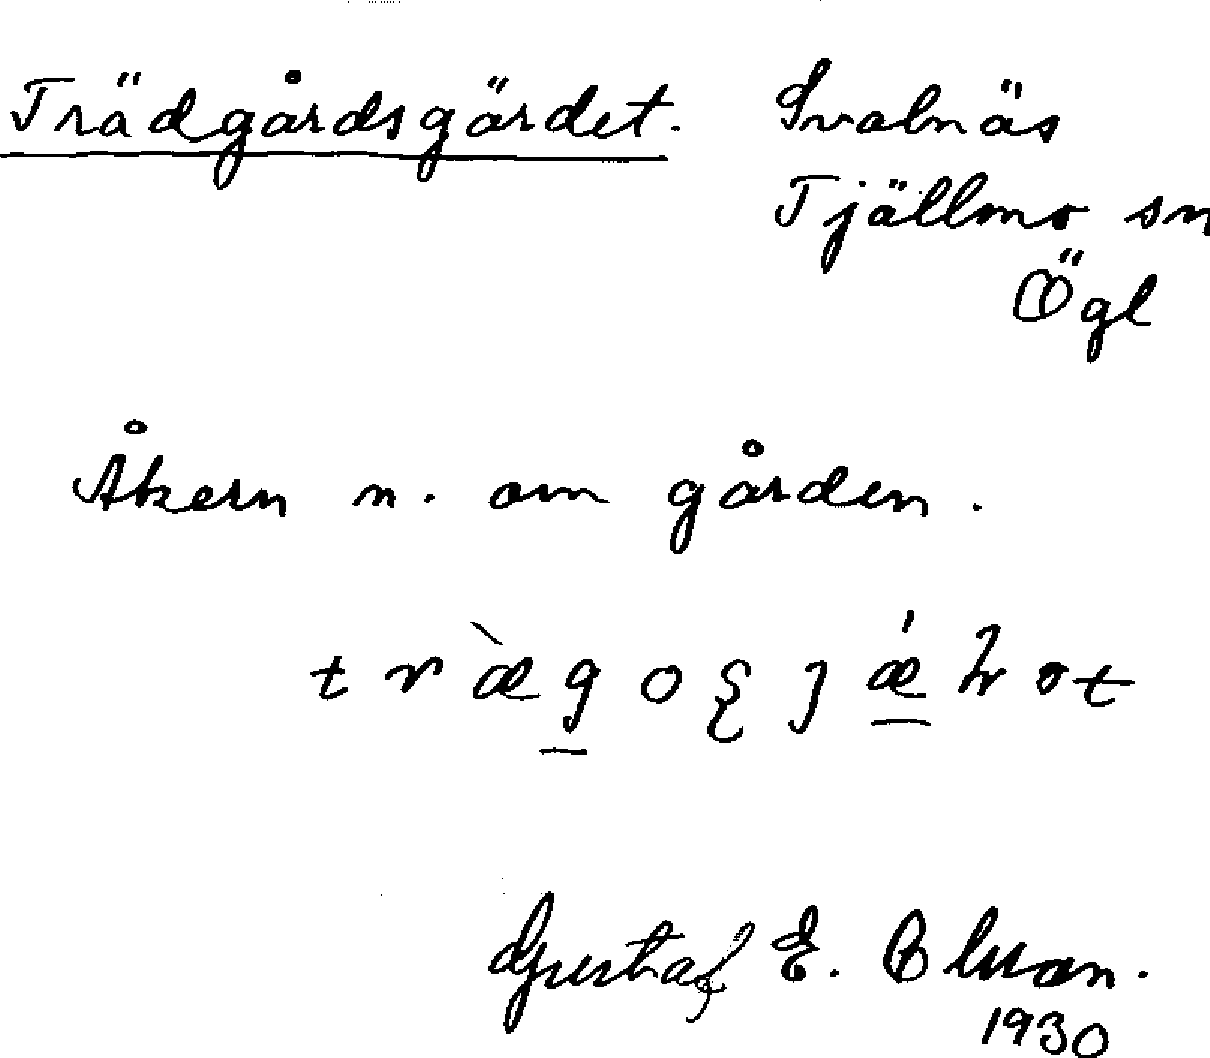 Trädgårdsgärdet. Svalnäs
Tjällmo sn
Ögl
Åkern n. om gården.
Gustaf E.
1930